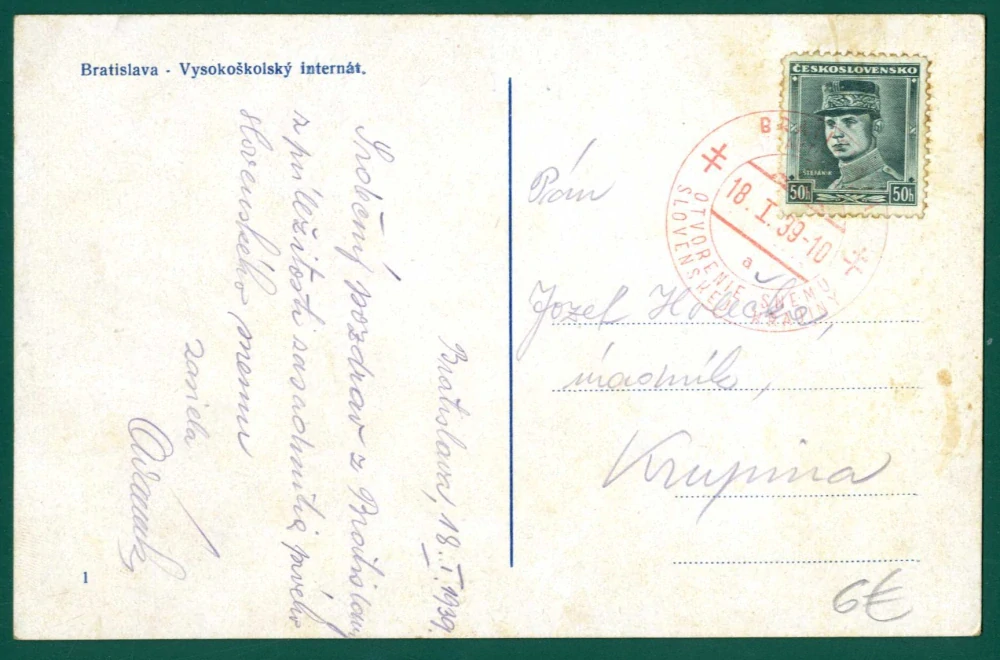 Bratislava - Vysokoškolský internát.
Bratislava, 18.I.1939.
Srdečný pozdrav z Bratislavy
z príležitosti zasadnutia prvého
slovenského snemu
zasiela
1
ČESKOSLOVENSKO
ŠTEFÁNIK
50h 50h
18.I.39-10
a
OTVORENIE SNEMU
SLOVENSKEJ KRAJINY
Pán
Jozef
úradník,
Krupina
6€